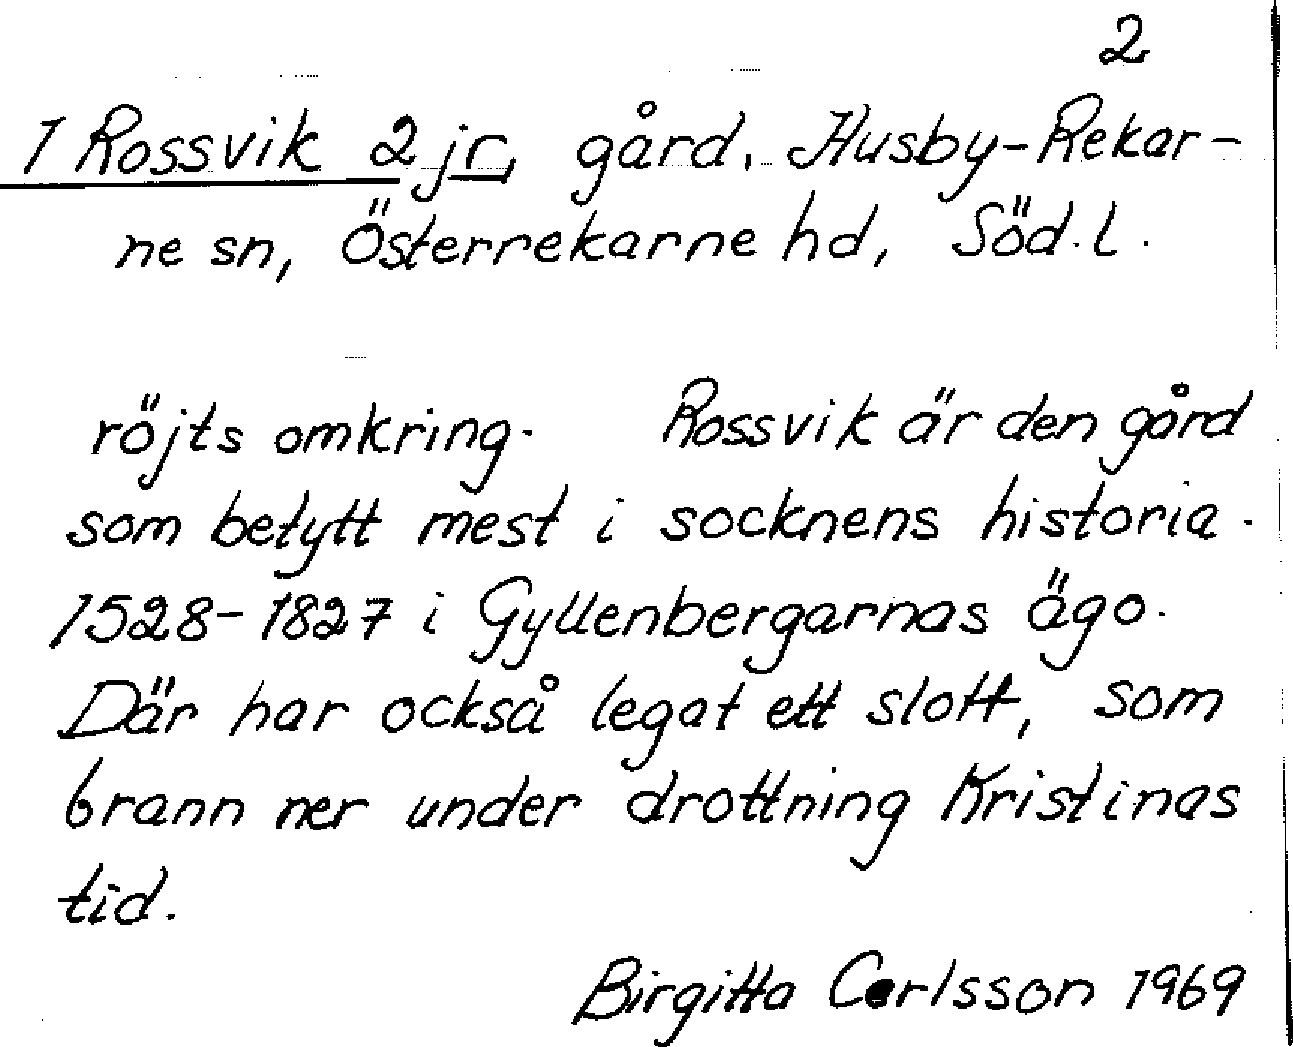 2
1 Rossvik 2 jr, gård, Husby-Rekar-
ne sn, Österrekarne hd, Söd. l.
röjts omkring. Rossvik är den gård
som betytt mest i socknens historia.
1528-1827 i Gyllenbergarnas ägo.
Där har också legat ett slott, som
brann ner under drottning Kristinas
tid.
Birgitta Carlsson 1969